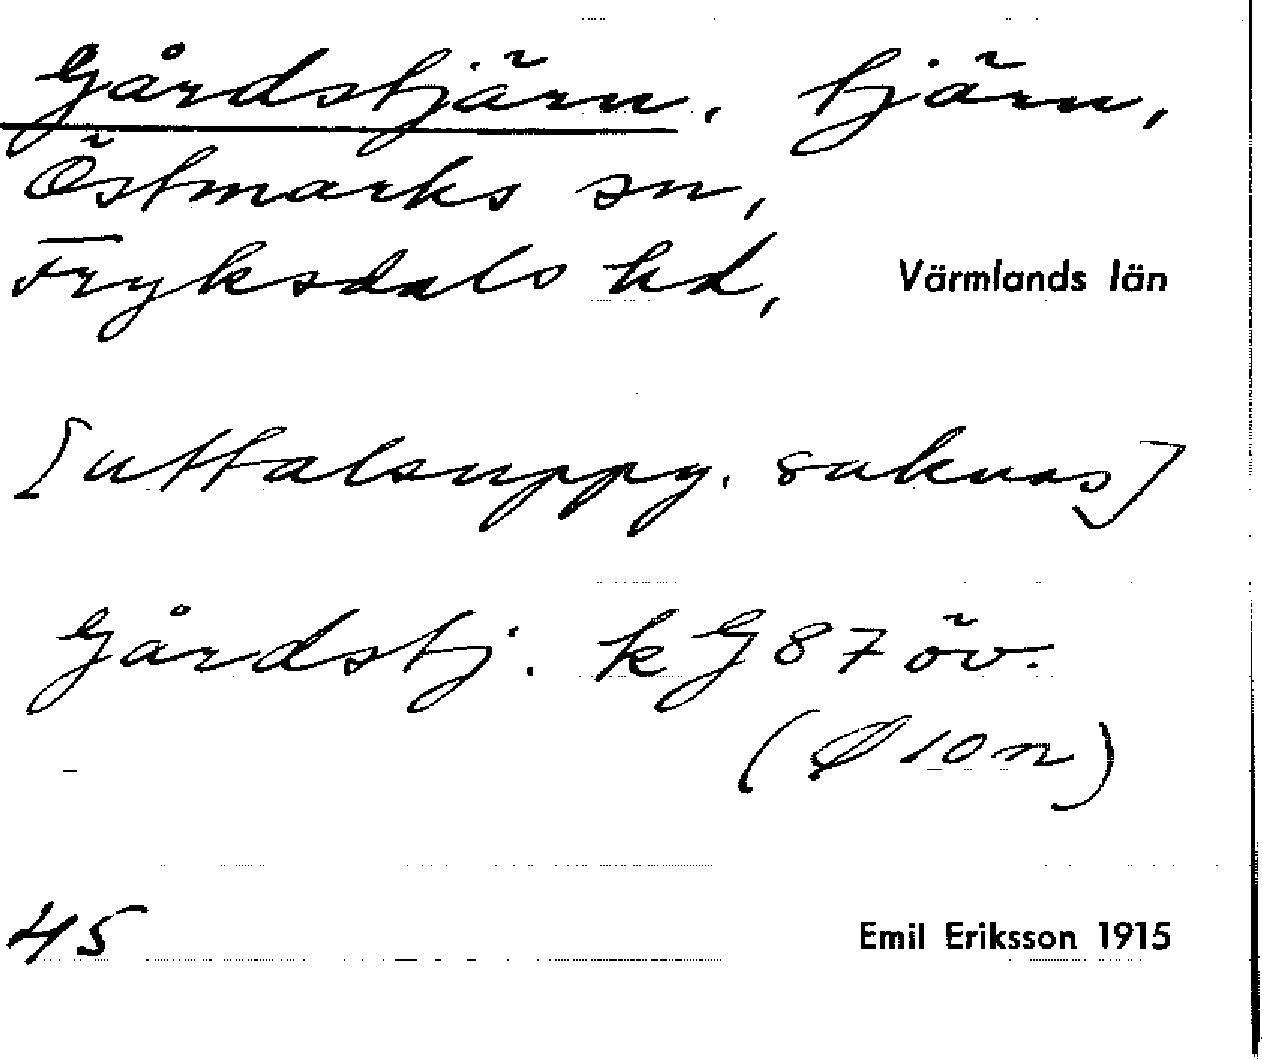 Gårdstjärn. tjärn,
Östmarks sn,
Fryksdals hd, Värmlands län
[uttalsuppg. saknas]
Gårdstj. k G 87 öv.
(Ø 10 n)
45 Emil Eriksson 1915